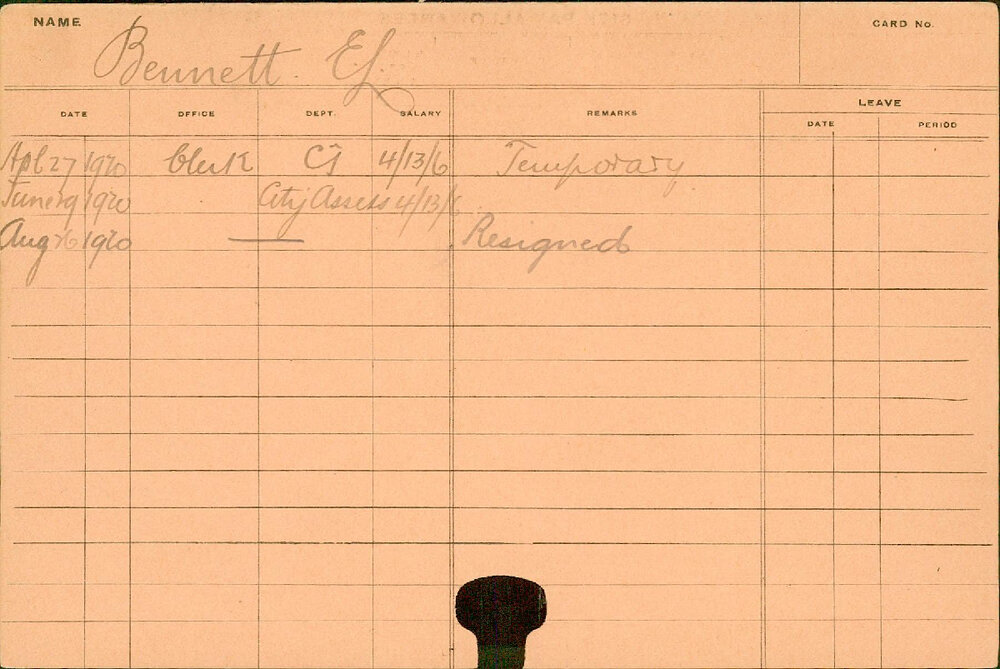 NAME
CARD No.
Bennett. E.L.
DATE OFFICE DEPT. SALARY REMARKS LEAVE
DATE PERIOD
Apl 27 1920 Clerk 4/13/6 Temporary
June 1920 City Assess 4/13/6
Aug 26 1920 — Resigned